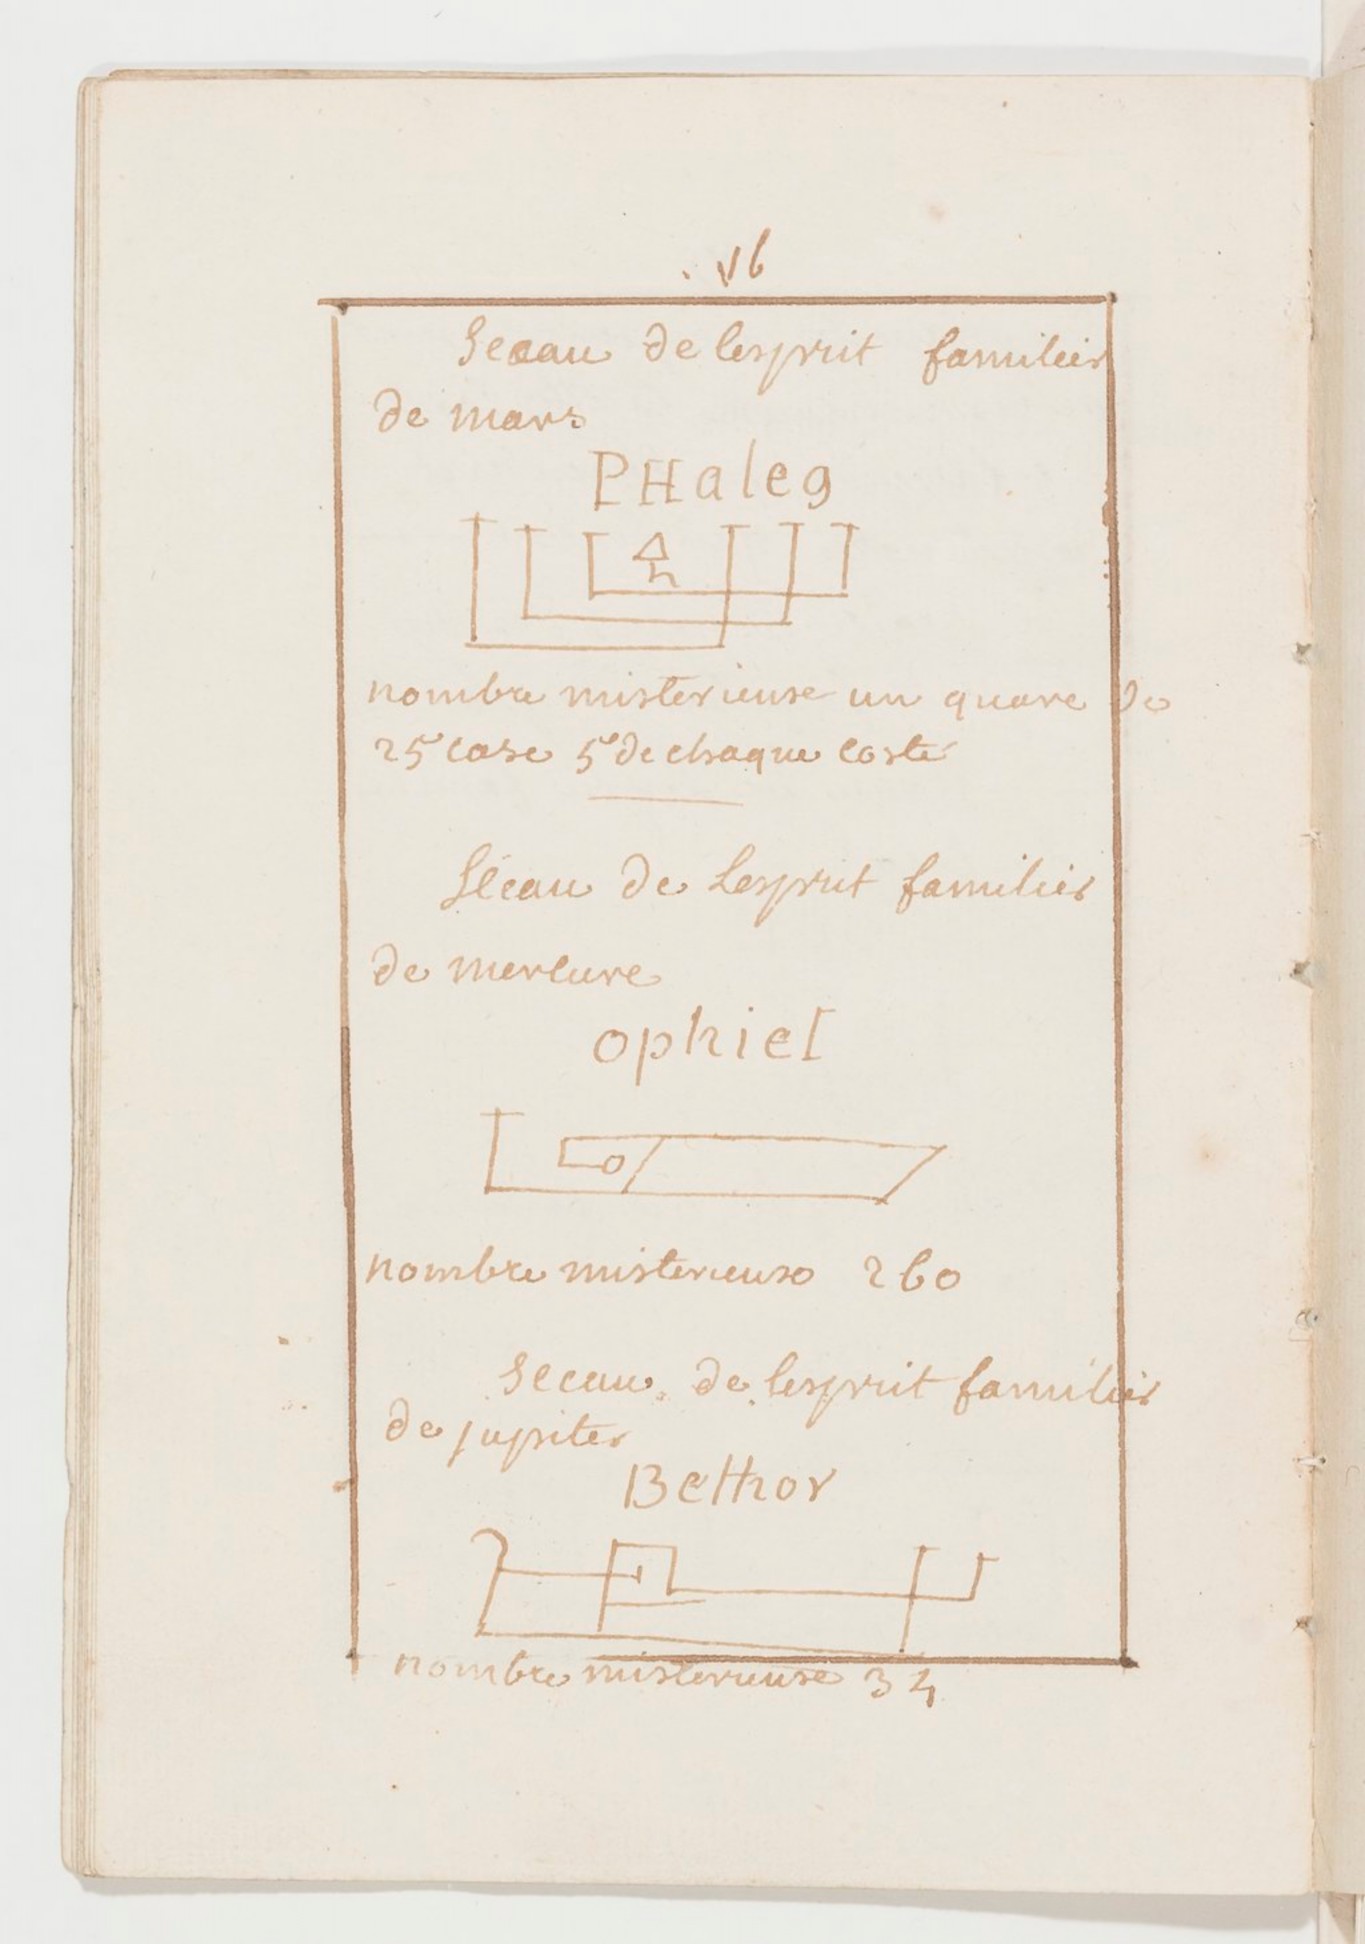 16
Seceau de lesprit familier
de mars
PHaleg
nombre misterieuse un quare de
25 case 5 de chaque coste
Séeau de Lesprit familier
de mercure
ophiel
nombre misterieuse 260
Seceau de lesprit familier
de jupiter
BetHor
nombre misterieuse 34